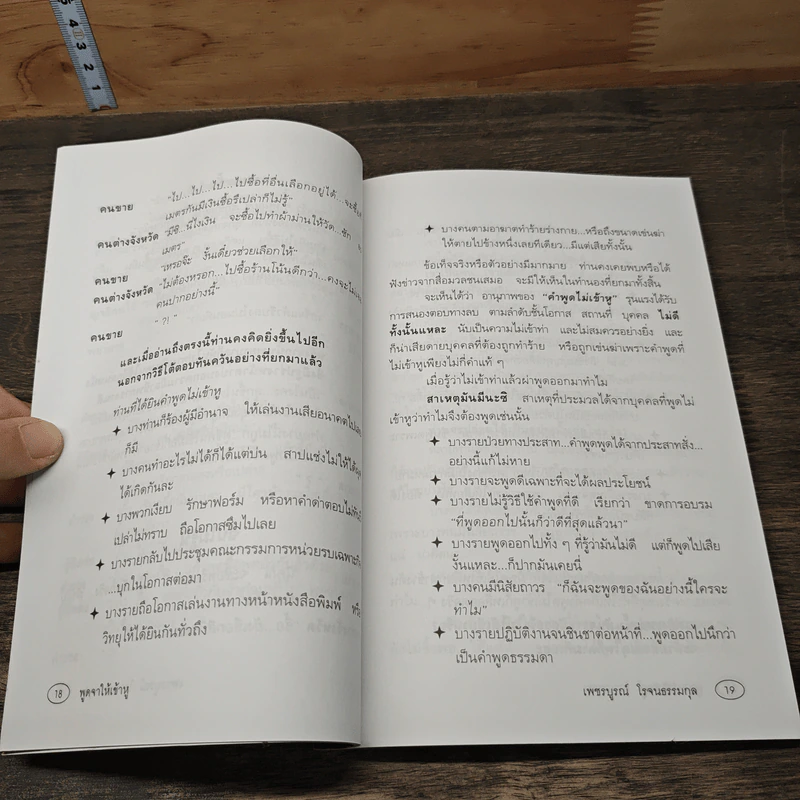 5 4 3 2 1
คนขาย "ไป...ไป...ไป...ไปซื้อที่อื่นเลือกอยู่ได้...จะซื้อ
เมตรกันมีเงินซื้อรึเปล่าก็ไม่รู้"
คนต่างจังหวัด "มีซิ...นี่ไงเงิน จะซื้อไปทำผ้าม่านให้วัด...ซัก
เมตร"
คนขาย "เหรอจ๊ะ งั้นเดี๋ยวช่วยเลือกให้"
คนต่างจังหวัด "ไม่ต้องหรอก...ไปซื้อร้านโน้นดีกว่า...คงจะไม่
คนปากอย่างนี้"
คนขาย " ?! "
และเมื่ออ่านถึงตรงนี้ท่านคงคิดยิ่งขึ้นไปอีก
นอกจากวิธีโต้ตอบทันควันอย่างที่ยกมาแล้ว
ท่านที่ได้ยินคำพูดไม่เข้าหู
บางท่านก็ร้องผู้มีอำนาจ ให้เล่นงานเสียอนาคตไปเลย
ก็มี
บางคนทำอะไรไม่ได้ก็ได้แต่บ่น สาปแช่งไม่ให้ได้
ได้เกิดกันละ
บางพวกเงียบ รักษาฟอร์ม หรือหาคำด่าตอบไม่ทัน
เปล่าไม่ทราบ ถือโอกาสซึมไปเลย
บางรายกลับไปประชุมคณะกรรมการหน่วยรบเฉพาะกิจ
...บุกในโอกาสต่อมา
บางรายถือโอกาสเล่นงานทางหน้าหนังสือพิมพ์ หรือ
วิทยุให้ได้ยินกันทั่วถึง
18 พูดจาให้เข้าหู
บางคนตามอาฆาตทำร้ายร่างกาย...หรือถึงขนาดเข่นฆ่า
ให้ตายไปข้างหนึ่งเลยทีเดียว...มีแต่เสียทั้งนั้น
ข้อเท็จจริงหรือตัวอย่างมีมากมาย ท่านคงเคยพบหรือได้
ฟังข่าวจากสื่อมวลชนเสมอ จะมีให้เห็นในทำนองที่ยกมาทั้งสิ้น
จะเห็นได้ว่า อานุภาพของ "คำพูดไม่เข้าหู" รุนแรงได้รับ
การสนองตอบทางลบ ตามลำดับชั้นโอกาส สถานที่ บุคคล ไม่ดี
ทั้งนั้นแหละ นับเป็นความไม่เข้าท่า และไม่สมควรอย่างยิ่ง และ
ก็น่าเสียดายบุคคลที่ต้องถูกทำร้าย หรือถูกเข่นฆ่าเพราะคำพูดที่
ไม่เข้าหูเพียงไม่กี่คำแท้ ๆ
เมื่อรู้ว่าไม่เข้าท่าแล้วฝ่าพูดออกมาทำไม
สาเหตุมันมีนะซิ สาเหตุที่ประมวลได้จากบุคคลที่พูดไม่
เข้าหูว่าทำไมจึงต้องพูดเช่นนั้น
บางรายป่วยทางประสาท...คำพูดพูดได้จากประสาทสั่ง...
อย่างนี้แก้ไม่หาย
บางรายจะพูดดีเฉพาะที่จะได้ผลประโยชน์
บางรายไม่รู้วิธีใช้คำพูดที่ดี เรียกว่า ขาดการอบรม
"ที่พูดออกไปนั้นก็ว่าดีที่สุดแล้วนา"
บางรายพูดออกไปทั้ง ๆ ที่รู้ว่ามันไม่ดี แต่ก็พูดไปเสีย
งั้นแหละ...ก็ปากมันเคยนี่
บางคนมีนิสัยถาวร "ก็ฉันจะพูดของฉันอย่างนี้ใครจะ
ทำไม"
บางรายปฏิบัติงานจนชินชาต่อหน้าที่...พูดออกไปนึกว่า
เป็นคำพูดธรรมดา
เพชรบูรณ์ โรจนธรรมกุล 19